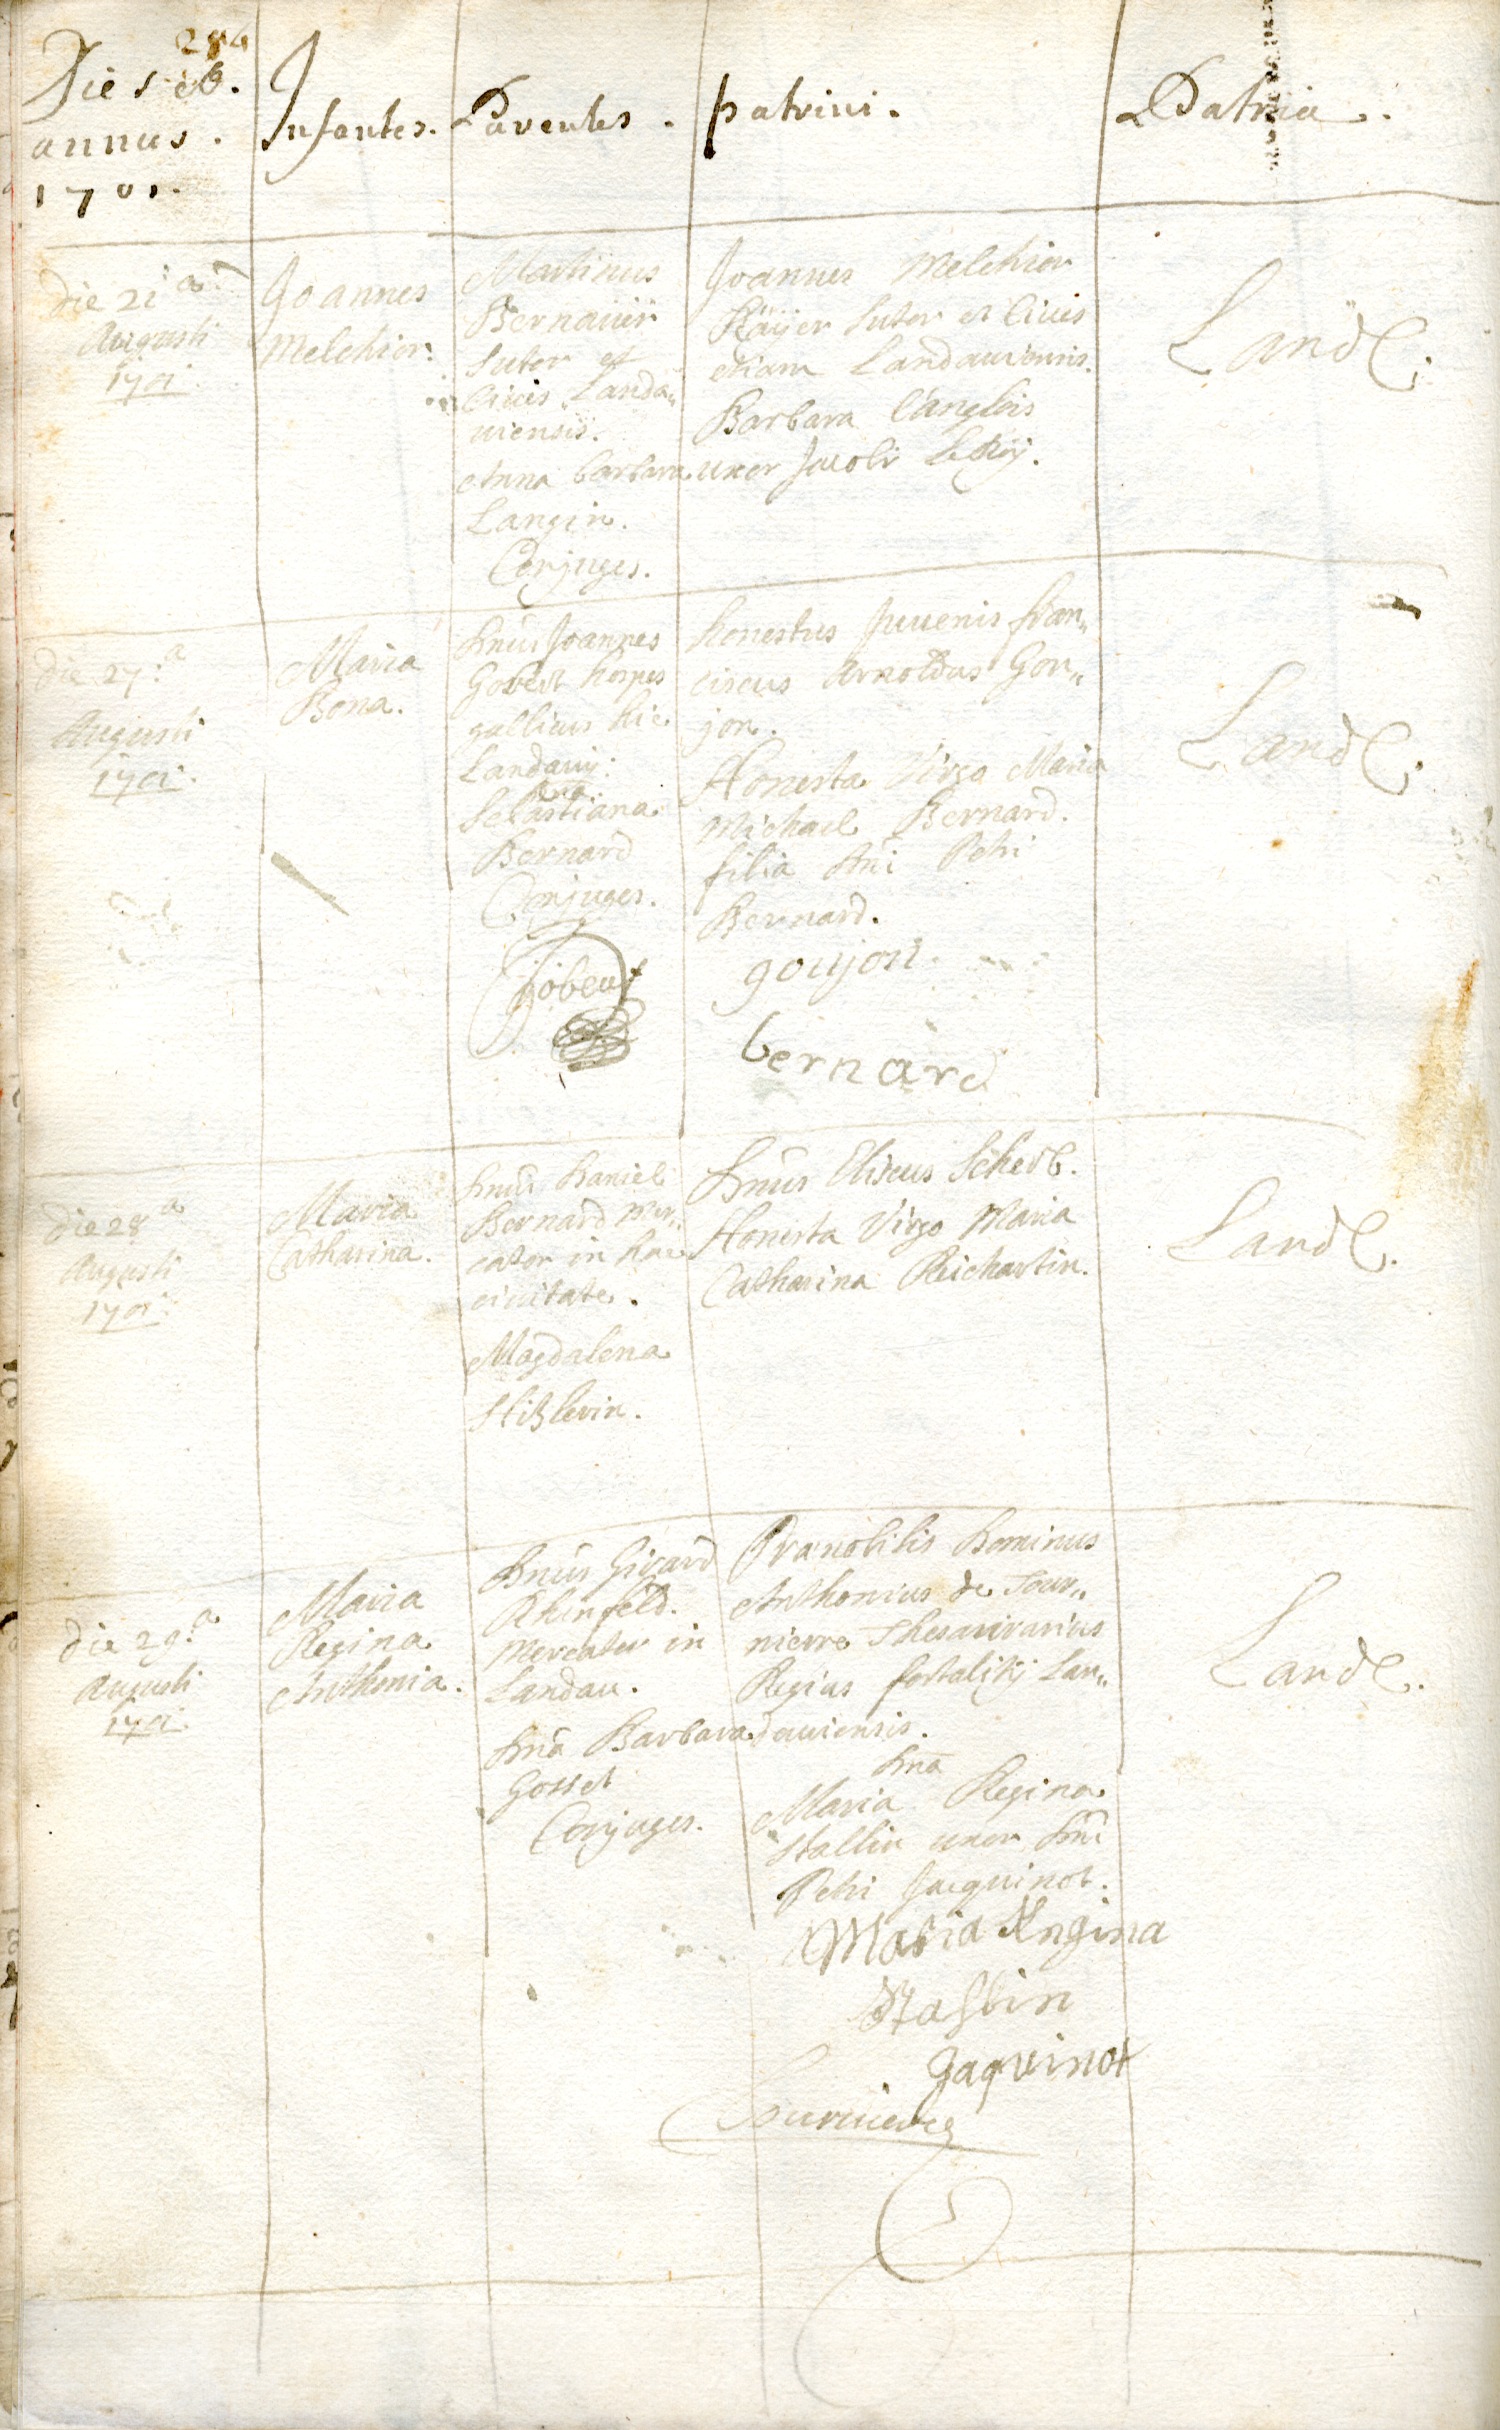 284
Dies et
annus.
1701.
Infantes.
Parentes.
patrini.
Patria.
die 21a
Augusti
1701.
Joannes
Melchior.
Martinus
Bernauer
Sutor et
Civis Landa„
viensis.
Anna barbara
Langin.
Conjuges.
Joannes Melchior
Kaÿer Sutor et Civis
etiam Landaviensis.
Barbara l'anglois
uxor Jacobi LeRoÿ.
Land.
die 27.a
Augusti
1701.
Maria
Bona.
Dnus Joannes
Gobert hospes
gallicus hic
Landavij.
Dna
Sebastiana
Bernard
Conjuges.
Gobeut
honestus Juvenis fran„
ciscus Arnoldus Gou„
jon.
Honesta Virgo Maria
Michael Bernard.
filia Dni Petri
Bernard.
goujon
bernard
Land.
die 28a
Augusti
1701.
Maria
Catharina.
Dnus Daniel
Bernard Mer„
cator in hac
civitate.
Magdalena
Hißlerin.
Dnus Eliseus Scherb.
Honesta Virgo Maria
Catharina Reichartin.
Land.
die 29.a
Augusti
1701.
Maria
Regina
Anthonia.
Dnus Girard
Rhinfeld.
Mercator in
Landau.
Dna Barbara
Gosset
Conjuges.
Prænobilis Dominus
Anthonius de Tour„
nierre Thesaurarius
Regius fortalitij Lan„
daviensis.
Dna
Maria Regina
Stallin uxor Dni
Petri Jacquinot.
Maria Regina
Stallin
Jaquinot
Tournierre
Land.